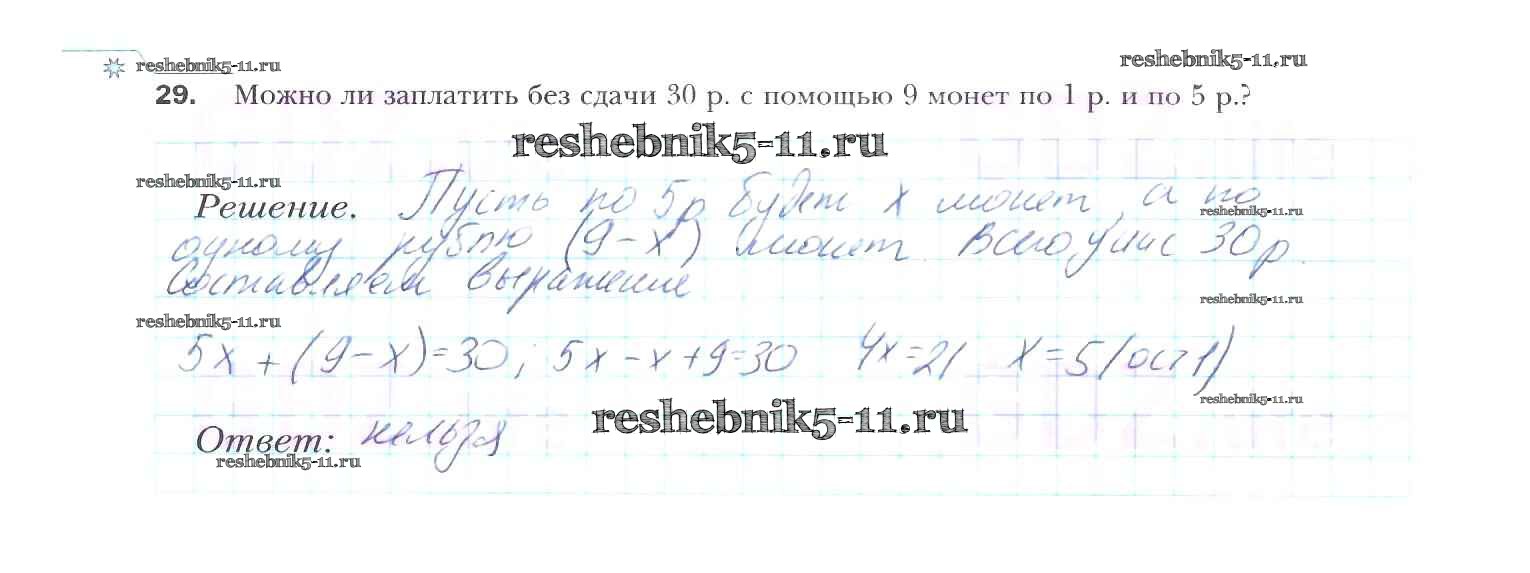 reshebnik5-11.ru
reshebnik5-11.ru
29. Можно ли заплатить без сдачи 30 р. с помощью 9 монет по 1 р. и по 5 р.?
reshebnik5-11.ru
reshebnik5-11.ru
Решение. Пусть по 5р будет х монет, а по
reshebnik5-11.ru
одному рублю (9-х) монет. Всего у нас 30р.
Составляем выражение
reshebnik5-11.ru
reshebnik5-11.ru
5х + (9-х)=30; 5х-х+9=30 4х=21 х=5(ост1)
reshebnik5-11.ru
reshebnik5-11.ru
Ответ: нельзя
reshebnik5-11.ru